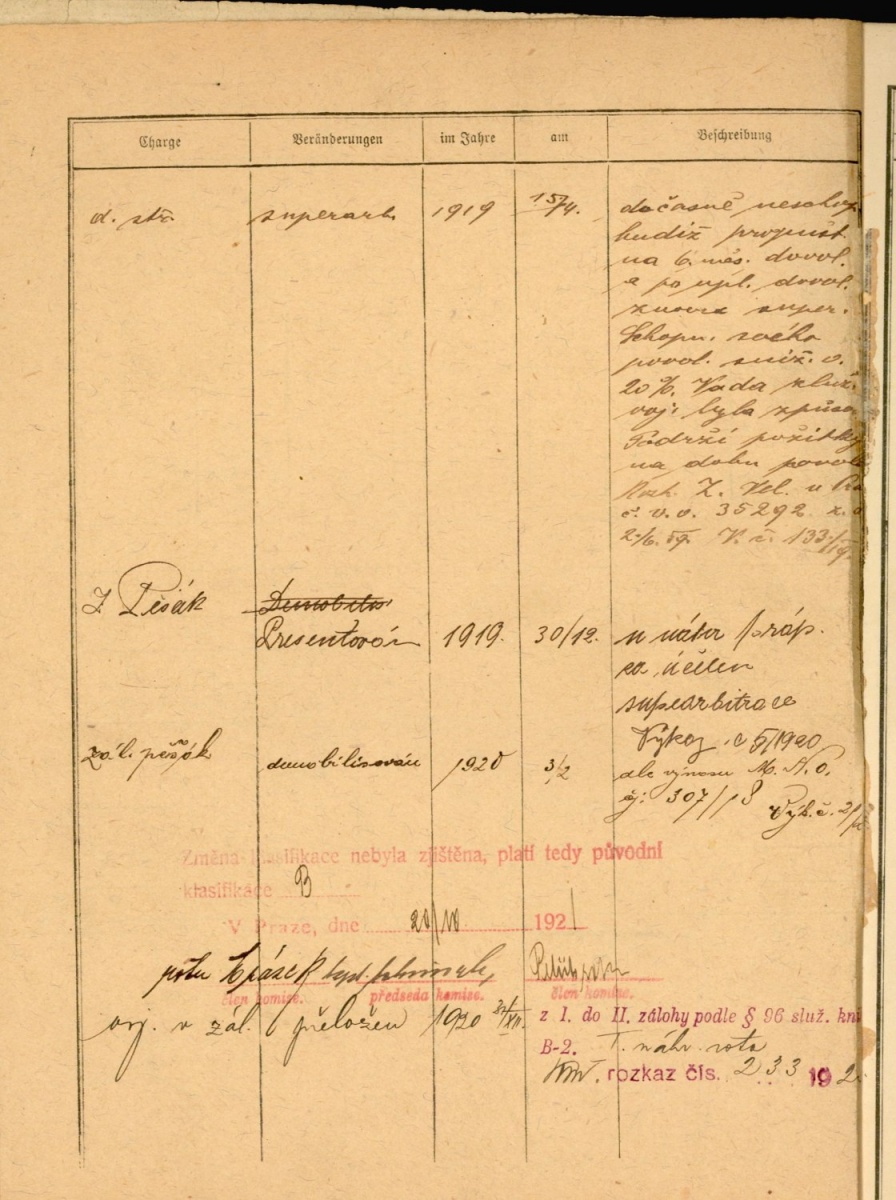 Charge Veränderungen im Jahre am Beschreibung
d. stř. superarb. 1919 15/4. dočasně neschop.
budiž propušt.
na 6. měs. dovol.
a po upl. dovol.
znovu super.
Schopn. svého
povol. sníž. o.
20%. Vada služ.
voj. byla způso
Podrží požitky
na dobu povol
Rozh. Z. Vel. v Pra
č. v. v. 35292 z. d
2./6. 19. V. č. 133/19.
Pěšák Demobilis
Presentován 1919. 30/12. u náhr práp.
za účelem
suparbitrace
Výkaz č 5/1920
zál. pěšák demobilisován 1920 3/2 dle výnosu M. N. O.
čj: 307/18
Výk. č. 2/
Změna klasifikace nebyla zjištěna, platí tedy původní
klasifikace B
V Praze, dne 20/10 1921
člen komise. předseda komise. člen komise.
voj. v zál. přeložen 1920 31/XII. z I. do II. zálohy podle § 96 služ. kni
B-2. I. náhr. rota
rozkaz čís. 233 192